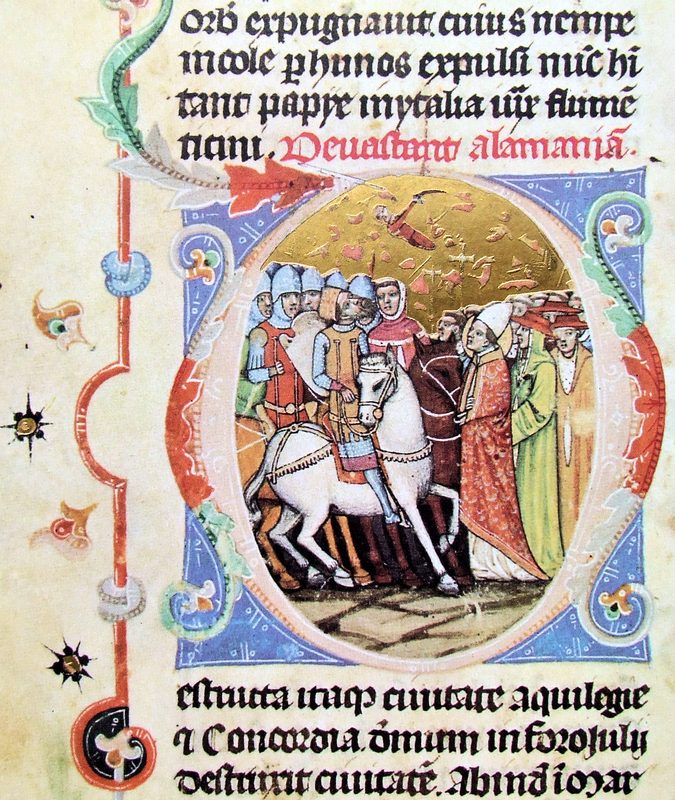 orb̄ expugnauit. cuius nempe
incole ꝑ hunos expulsi nūc hī
tant papye in ytalia iux̄ flumē
ticini. Deuastant alamaniā.
estructa itaqꝫ ciuitate aquilegie
⁊ Concordia. dmum in foro Julij
destruxit ciuitatē. Abind